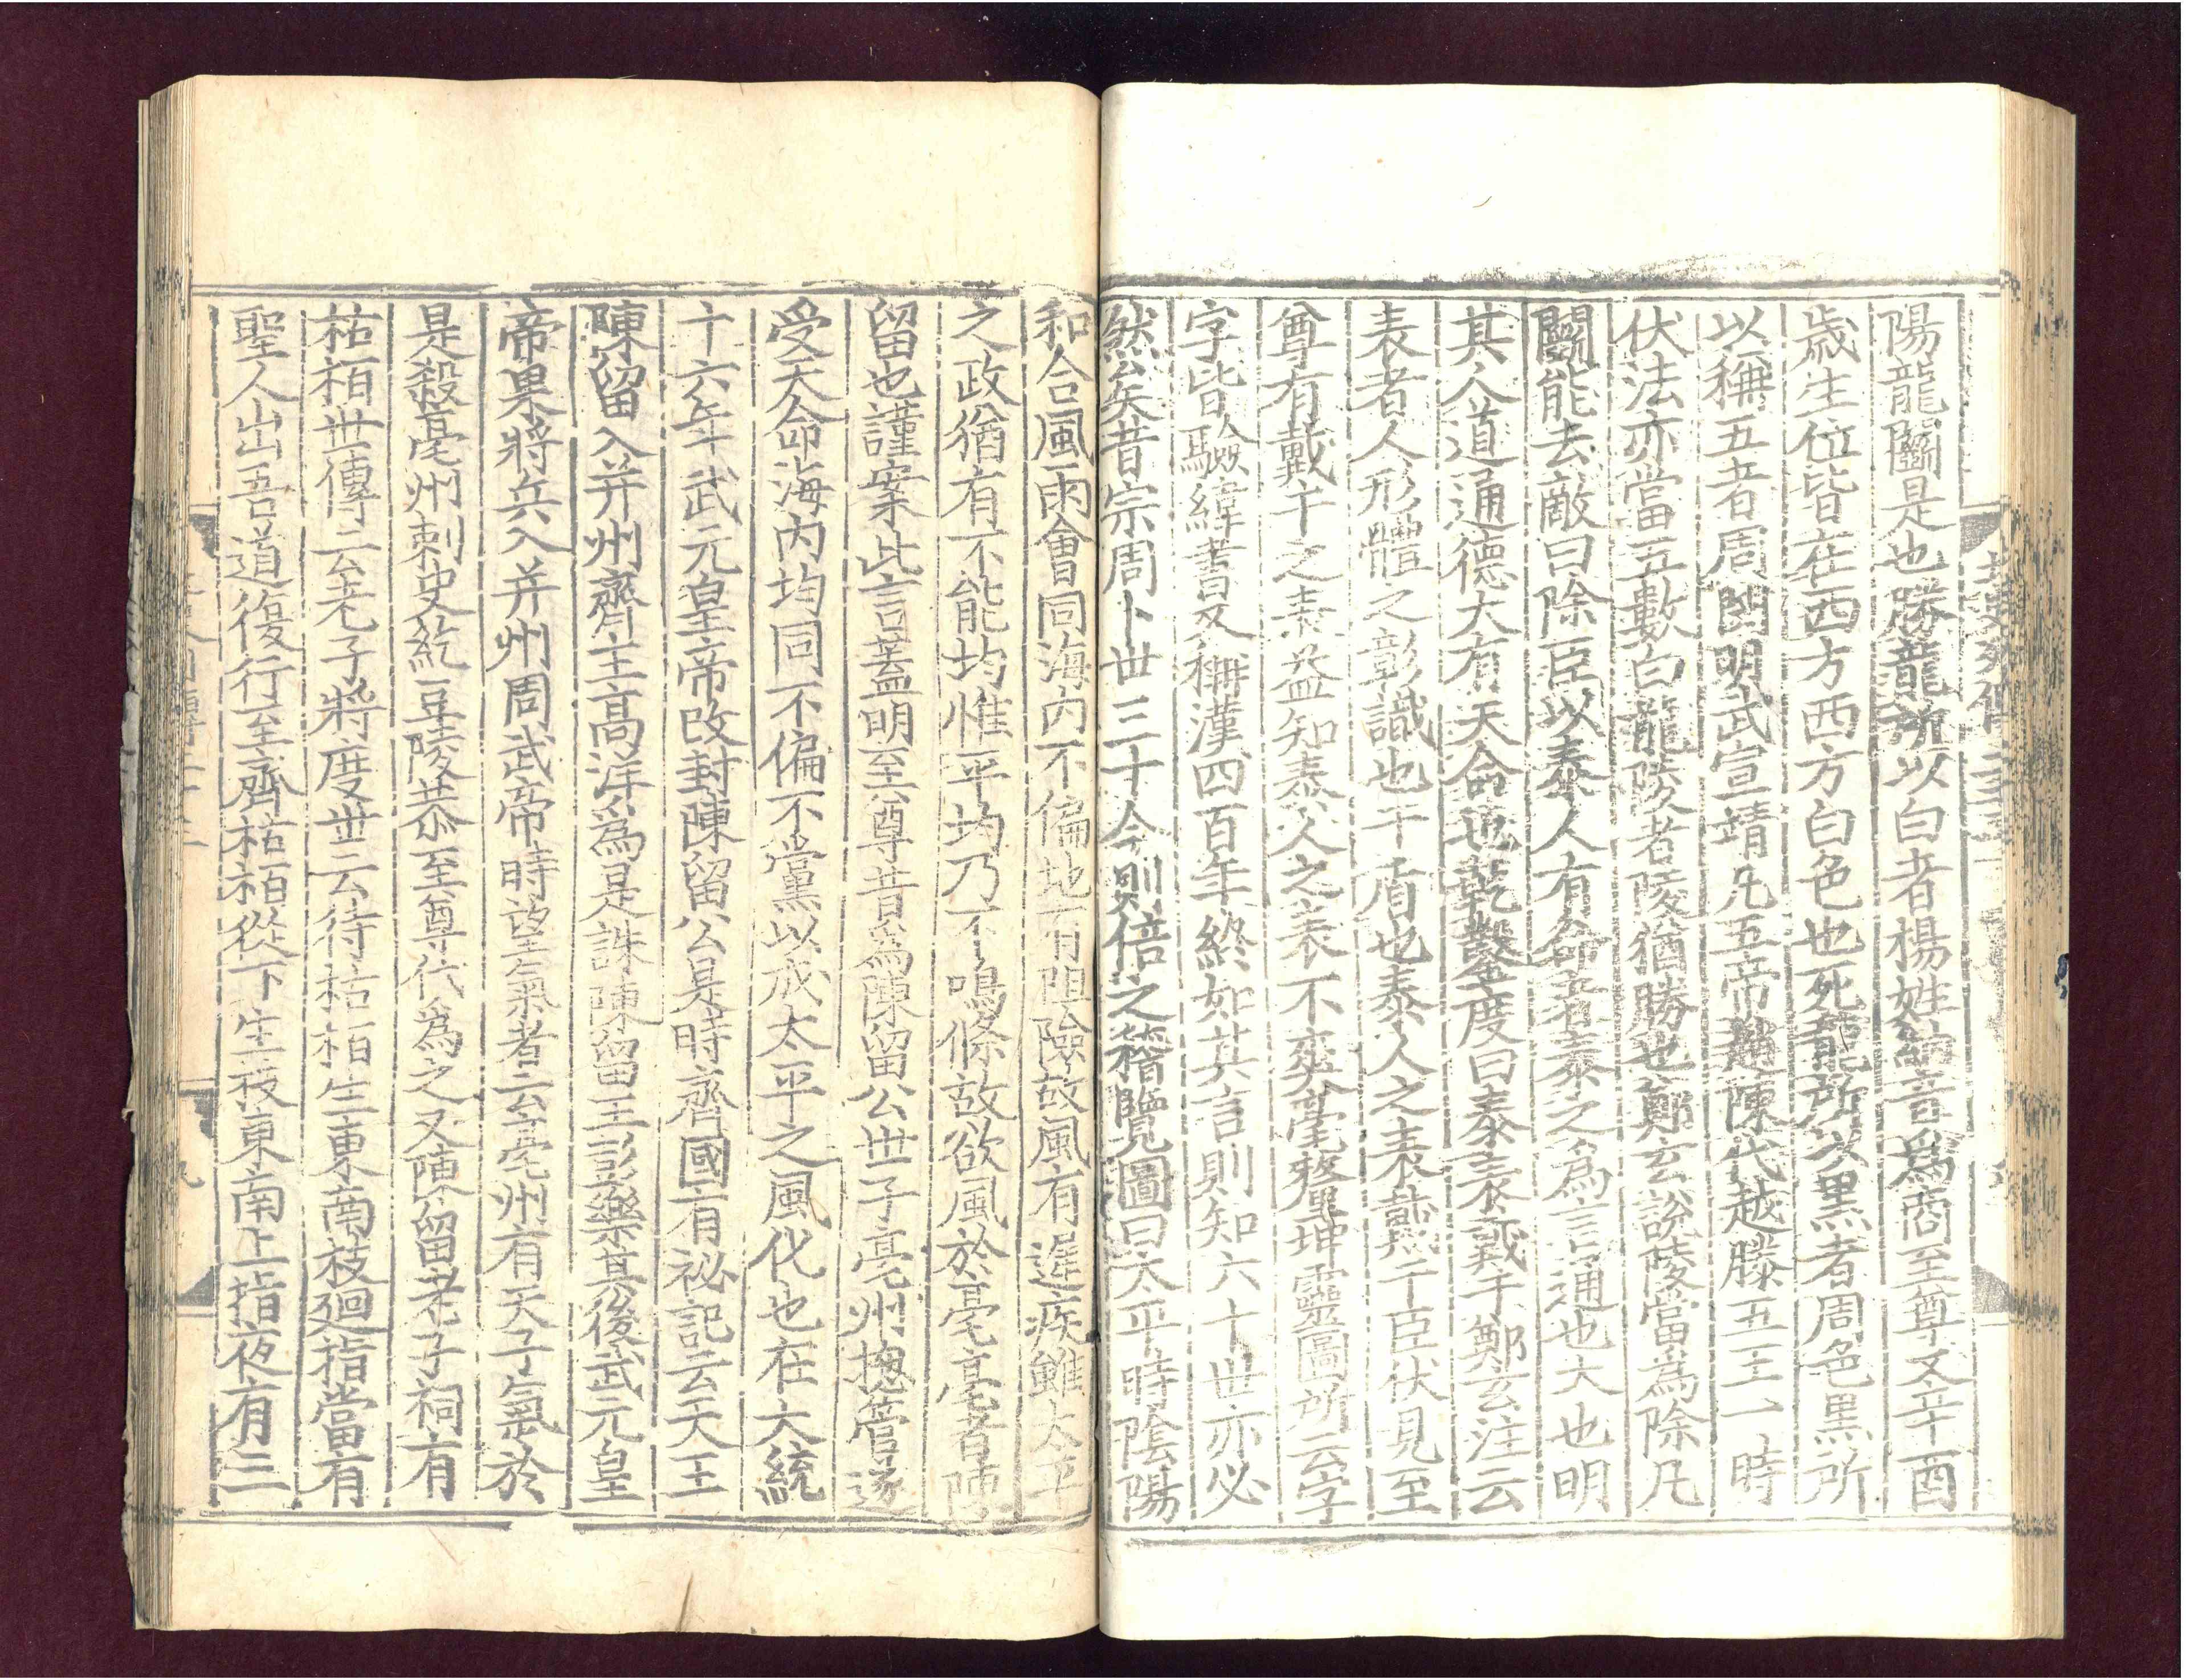 陽龍鬭是也勝龍所以白者楊姓納音爲商至尊又辛酉
歲生位皆在西方西方白色也死龍所以黒者周色黒所
以稱五者周閔明武宣靖凡五帝趙陳代越滕五王一時
伏法亦當五數白龍陵者陵猶勝也鄭玄說陵當爲除凡
鬭能去敵曰除臣以泰人有命者泰之爲言通也大也明
其人道通德大有天命也乾鑿度曰泰表戴干鄭玄注云
表者人形體之彰識也干盾也泰人之表戴干臣伏見至
尊有戴干之表益知泰人之表不爽毫釐坤靈圖所云字
字皆驗緯書又稱漢四百年終如其言則知六十世亦必
然矣昔宗周卜世三十今則倍之稽覽圖曰太平時陰陽
和合風雨會同海内不偏地有阻險故風有遲疾雖太平
之政猶有不能均惟平均乃不鳴條故欲風於亳亳者陳
留也謹案此言葢明至尊昔爲陳留公世子亳州揔管遂
受天命海内均同不偏不黨以成太平之風化也在大統
十六年武元皇帝改封陳留公是時齊國有祕記云天王
陳留入并州齊主髙洋爲是誅陳留王彭樂其後武元皇
帝果將兵入并州周武帝時望氣者云亳州有天子氣於
是殺亳州刺史紇豆陵恭至尊代爲之又陳留老子祠有
枯栢世傳云老子將度世云待枯栢生東南枝廻指當有
聖人出吾道復行至齊枯栢從下生枝東南上指夜有三